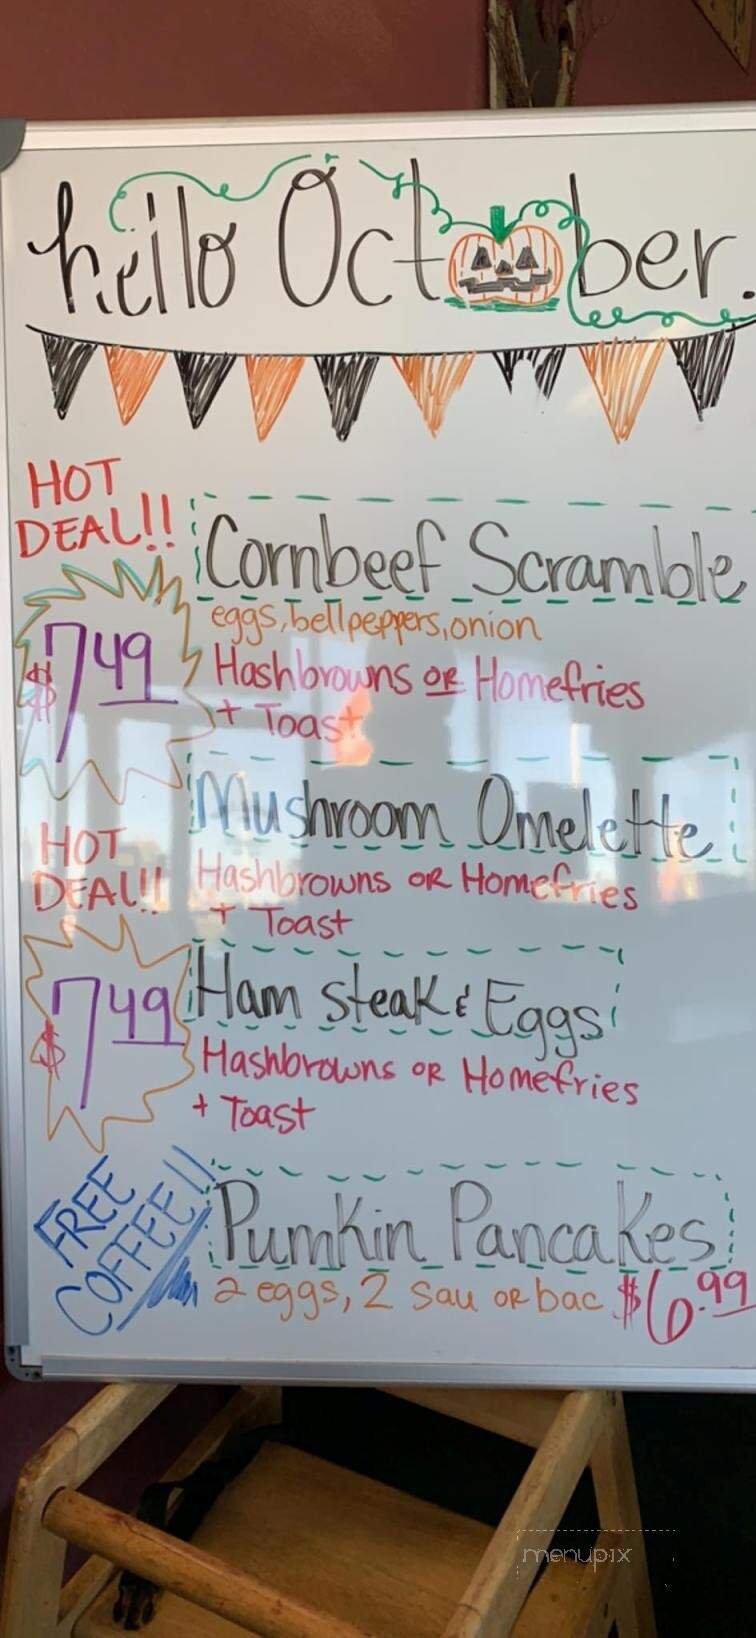 hello October.
HOT
DEAL!!
Cornbeef Scramble
eggs, bellpeppers, onion
$7.49
Hashbrowns OR Homefries
+ Toast
Mushroom Omelette
HOT
DEAL!!
Hashbrowns OR Homefries
+ Toast
Ham steak & Eggs
$7.49
Hashbrowns OR Homefries
+ Toast
FREE
COFFEE!!
Pumkin Pancakes
2 eggs, 2 sau OR bac $6.99
menupix